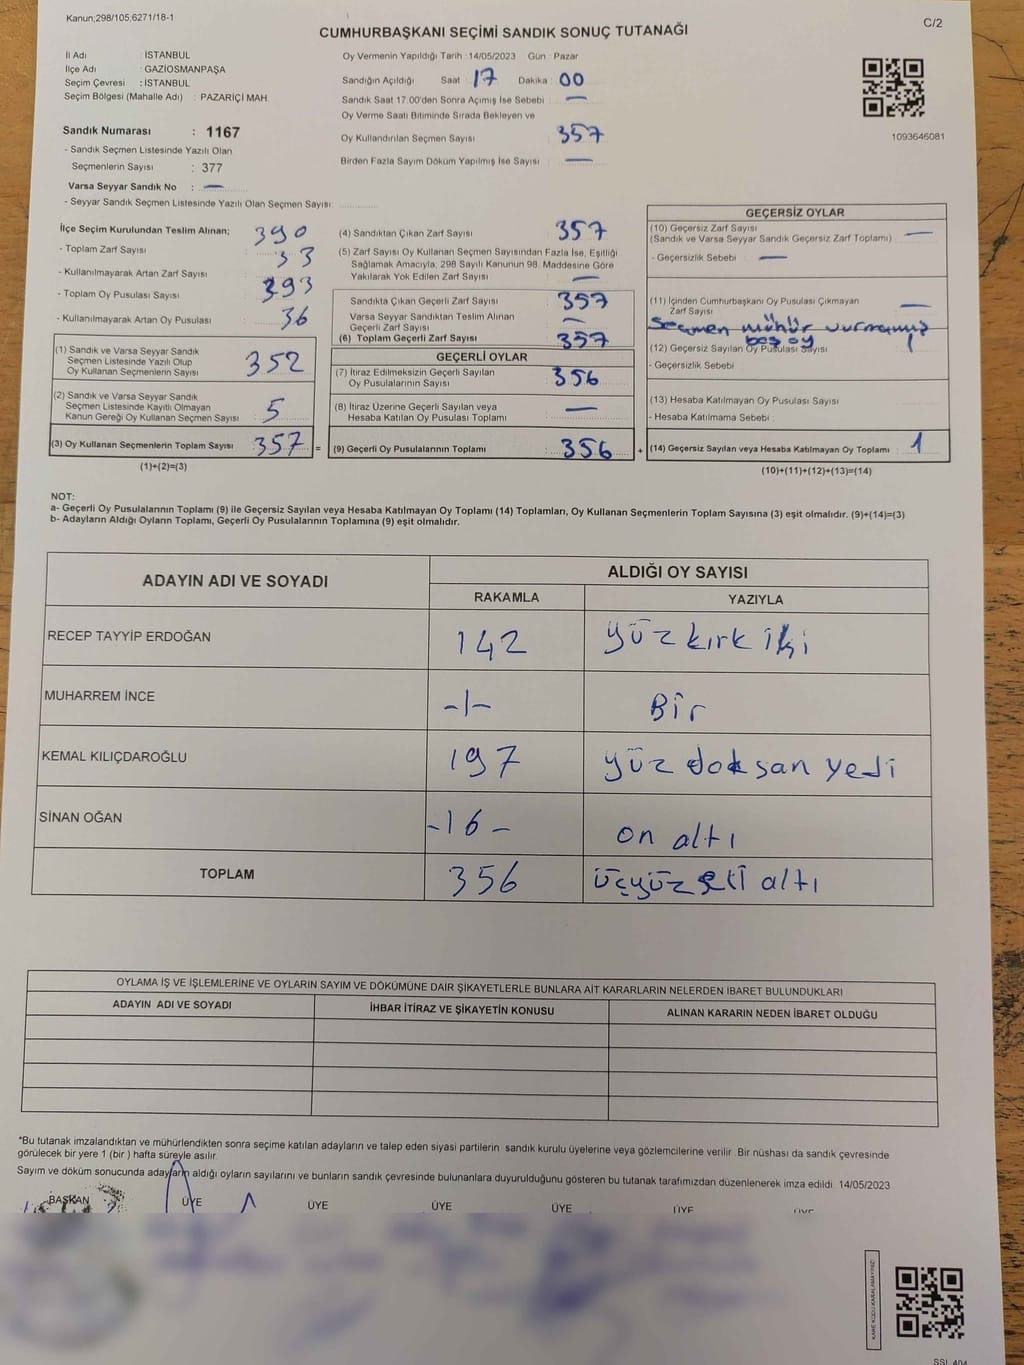 Kanun;298/105;6271/18-1
C/2
CUMHURBAŞKANI SEÇİMİ SANDIK SONUÇ TUTANAĞI
İl Adı : İSTANBUL
İlçe Adı : GAZİOSMANPAŞA
Seçim Çevresi : İSTANBUL
Seçim Bölgesi (Mahalle Adı) : PAZARİÇİ MAH.
Oy Vermenin Yapıldığı Tarih 14/05/2023 Gün Pazar
Sandığın Açıldığı Saat 17 Dakika 00
Sandık Saat 17.00'den Sonra Açılmış İse Sebebi : —
Oy Verme Saati Bitiminde Sırada Bekleyen ve
Oy Kullandırılan Seçmen Sayısı : 357
Birden Fazla Sayım Döküm Yapılmış İse Sayısı : —
1093646081
Sandık Numarası : 1167
- Sandık Seçmen Listesinde Yazılı Olan
Seçmenlerin Sayısı : 377
Varsa Seyyar Sandık No : —
- Seyyar Sandık Seçmen Listesinde Yazılı Olan Seçmen Sayısı:
İlçe Seçim Kurulundan Teslim Alınan; 390
- Toplam Zarf Sayısı 33
- Kullanılmayarak Artan Zarf Sayısı
- Toplam Oy Pusulası Sayısı 393
- Kullanılmayarak Artan Oy Pusulası 36
(1) Sandık ve Varsa Seyyar Sandık
Seçmen Listesinde Yazılı Olup
Oy Kullanan Seçmenlerin Sayısı 352
(2) Sandık ve Varsa Seyyar Sandık
Seçmen Listesinde Kayıtlı Olmayan
Kanun Gereği Oy Kullanan Seçmen Sayısı 5
(3) Oy Kullanan Seçmenlerin Toplam Sayısı 357 =
(1)+(2)=(3)
(4) Sandıktan Çıkan Zarf Sayısı 357
(5) Zarf Sayısı Oy Kullanan Seçmen Sayısından Fazla İse, Eşitliği
Sağlamak Amacıyla; 298 Sayılı Kanunun 98. Maddesine Göre
Yakılarak Yok Edilen Zarf Sayısı —
Sandıkta Çıkan Geçerli Zarf Sayısı 357
Varsa Seyyar Sandıktan Teslim Alınan
Geçerli Zarf Sayısı —
(6) Toplam Geçerli Zarf Sayısı 357
GEÇERLİ OYLAR
(7) İtiraz Edilmeksizin Geçerli Sayılan
Oy Pusulalarının Sayısı 356
(8) İtiraz Üzerine Geçerli Sayılan veya
Hesaba Katılan Oy Pusulası Toplamı —
(9) Geçerli Oy Pusulalarının Toplamı 356 +
GEÇERSİZ OYLAR
(10) Geçersiz Zarf Sayısı
(Sandık ve Varsa Seyyar Sandık Geçersiz Zarf Toplamı) —
- Geçersizlik Sebebi : —
(11) İçinden Cumhurbaşkanı Oy Pusulası Çıkmayan
Zarf Sayısı —
Seçmen mühür vurmamış
boş oy
(12) Geçersiz Sayılan Oy Pusulası Sayısı 1
- Geçersizlik Sebebi :
(13) Hesaba Katılmayan Oy Pusulası Sayısı
- Hesaba Katılmama Sebebi :
(14) Geçersiz Sayılan veya Hesaba Katılmayan Oy Toplamı : 1
(10)+(11)+(12)+(13)=(14)
NOT:
a- Geçerli Oy Pusulalarının Toplamı (9) ile Geçersiz Sayılan veya Hesaba Katılmayan Oy Toplamı (14) Toplamları, Oy Kullanan Seçmenlerin Toplam Sayısına (3) eşit olmalıdır. (9)+(14)=(3)
b- Adayların Aldığı Oyların Toplamı, Geçerli Oy Pusulalarının Toplamına (9) eşit olmalıdır.
ADAYIN ADI VE SOYADI
ALDIĞI OY SAYISI
RAKAMLA YAZIYLA
RECEP TAYYİP ERDOĞAN 142 yüz kırk iki
MUHARREM İNCE -1- Bir
KEMAL KILIÇDAROĞLU 197 yüz doksan yedi
SİNAN OĞAN -16- on altı
TOPLAM 356 üçyüz elli altı
OYLAMA İŞ VE İŞLEMLERİNE VE OYLARIN SAYIM VE DÖKÜMÜNE DAİR ŞİKAYETLERLE BUNLARA AİT KARARLARIN NELERDEN İBARET BULUNDUKLARI
ADAYIN ADI VE SOYADI İHBAR İTİRAZ VE ŞİKAYETİN KONUSU ALINAN KARARIN NEDEN İBARET OLDUĞU
*Bu tutanak imzalandıktan ve mühürlendikten sonra seçime katılan adayların ve talep eden siyasi partilerin sandık kurulu üyelerine veya gözlemcilerine verilir. Bir nüshası da sandık çevresinde
görülecek bir yere 1 (bir ) hafta süreyle asılır.
Sayım ve döküm sonucunda adayların aldığı oyların sayılarını ve bunların sandık çevresinde bulunanlara duyurulduğunu gösteren bu tutanak tarafımızdan düzenlenerek imza edildi. 14/05/2023
BAŞKAN ÜYE ÜYE ÜYE ÜYE ÜYE ÜYE